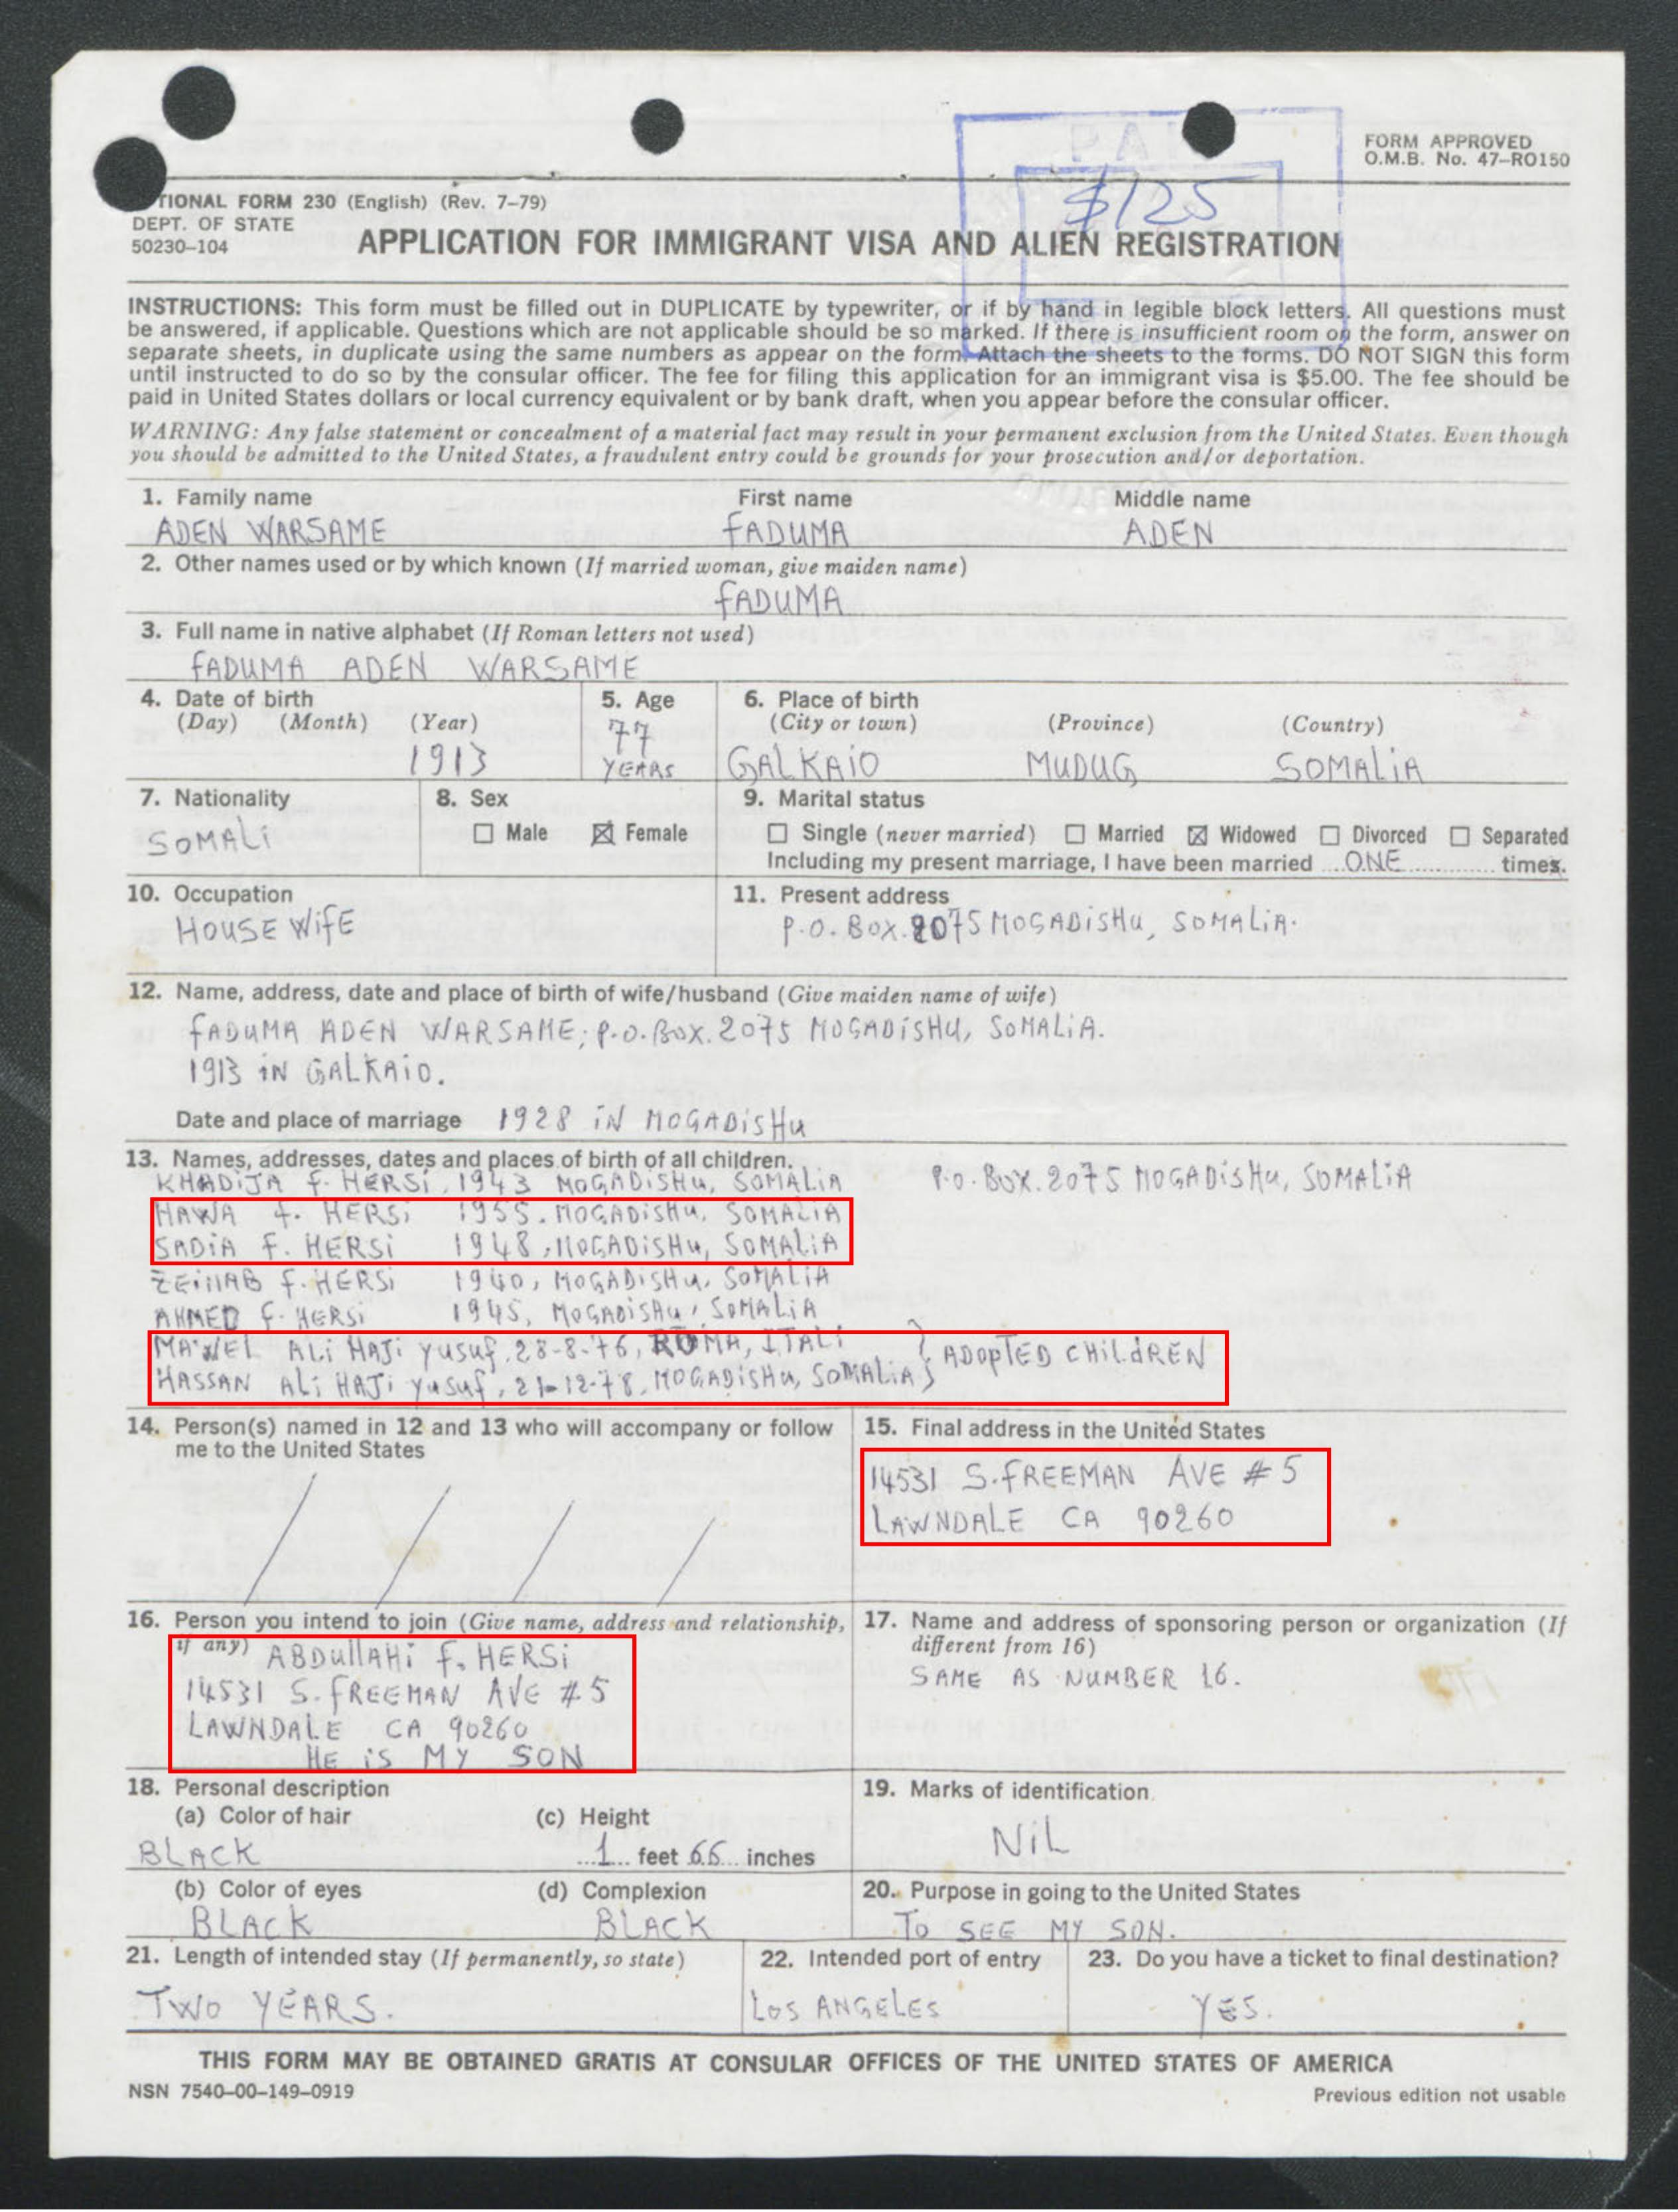 PAI
$125
FORM APPROVED
O.M.B. No. 47-RO150
TIONAL FORM 230 (English) (Rev. 7-79)
DEPT. OF STATE
50230-104
APPLICATION FOR IMMIGRANT VISA AND ALIEN REGISTRATION
INSTRUCTIONS: This form must be filled out in DUPLICATE by typewriter, or if by hand in legible block letters. All questions must
be answered, if applicable. Questions which are not applicable should be so marked. If there is insufficient room on the form, answer on
separate sheets, in duplicate using the same numbers as appear on the form. Attach the sheets to the forms. DO NOT SIGN this form
until instructed to do so by the consular officer. The fee for filing this application for an immigrant visa is $5.00. The fee should be
paid in United States dollars or local currency equivalent or by bank draft, when you appear before the consular officer.
WARNING: Any false statement or concealment of a material fact may result in your permanent exclusion from the United States. Even though
you should be admitted to the United States, a fraudulent entry could be grounds for your prosecution and/or deportation.
1. Family name First name Middle name
ADEN WARSAME FADUMA ADEN
2. Other names used or by which known (If married woman, give maiden name)
FADUMA
3. Full name in native alphabet (If Roman letters not used)
FADUMA ADEN WARSAME
4. Date of birth 5. Age 6. Place of birth
(Day) (Month) (Year) 77 (City or town) (Province) (Country)
1913 YEARS GALKAIO MUDUG SOMALIA
7. Nationality 8. Sex 9. Marital status
SOMALI ☐ Male ☒ Female ☐ Single (never married) ☐ Married ☒ Widowed ☐ Divorced ☐ Separated
Including my present marriage, I have been married ONE times.
10. Occupation 11. Present address
HOUSE WIFE P.O. BOX. 2075 MOGADISHU, SOMALIA.
12. Name, address, date and place of birth of wife/husband (Give maiden name of wife)
FADUMA ADEN WARSAME; P.O. BOX. 2075 MOGADISHU, SOMALIA.
1913 IN GALKAIO.
Date and place of marriage 1928 IN MOGADISHU
13. Names, addresses, dates and places of birth of all children.
KHADIJA F. HERSI, 1943 MOGADISHU, SOMALIA P.O. BOX. 2075 MOGADISHU, SOMALIA
HAWA F. HERSI 1955. MOGADISHU, SOMALIA
SADIA F. HERSI 1948, MOGADISHU, SOMALIA
ZEINAB F. HERSI 1940, MOGADISHU, SOMALIA
AHMED F. HERSI 1945, MOGADISHU, SOMALIA
ALI HAJI YUSUF, 28-8-76, ROMA, ITALI
HASSAN ALI HAJI YUSUF, 21-12-78, MOGADISHU, SOMALIA } ADOPTED CHILDREN
14. Person(s) named in 12 and 13 who will accompany or follow
me to the United States
15. Final address in the United States
14531 S. FREEMAN AVE # 5
LAWNDALE CA 90260
16. Person you intend to join (Give name, address and relationship,
if any) ABDULLAHI F. HERSI
14531 S. FREEMAN AVE # 5
LAWNDALE CA 90260
HE IS MY SON
17. Name and address of sponsoring person or organization (If
different from 16)
SAME AS NUMBER 16.
18. Personal description
(a) Color of hair (c) Height
BLACK 1 feet 66 inches
(b) Color of eyes (d) Complexion
BLACK BLACK
19. Marks of identification
NIL
20. Purpose in going to the United States
TO SEE MY SON.
21. Length of intended stay (If permanently, so state) 22. Intended port of entry 23. Do you have a ticket to final destination?
TWO YEARS. LOS ANGELES YES.
THIS FORM MAY BE OBTAINED GRATIS AT CONSULAR OFFICES OF THE UNITED STATES OF AMERICA
NSN 7540-00-149-0919 Previous edition not usable